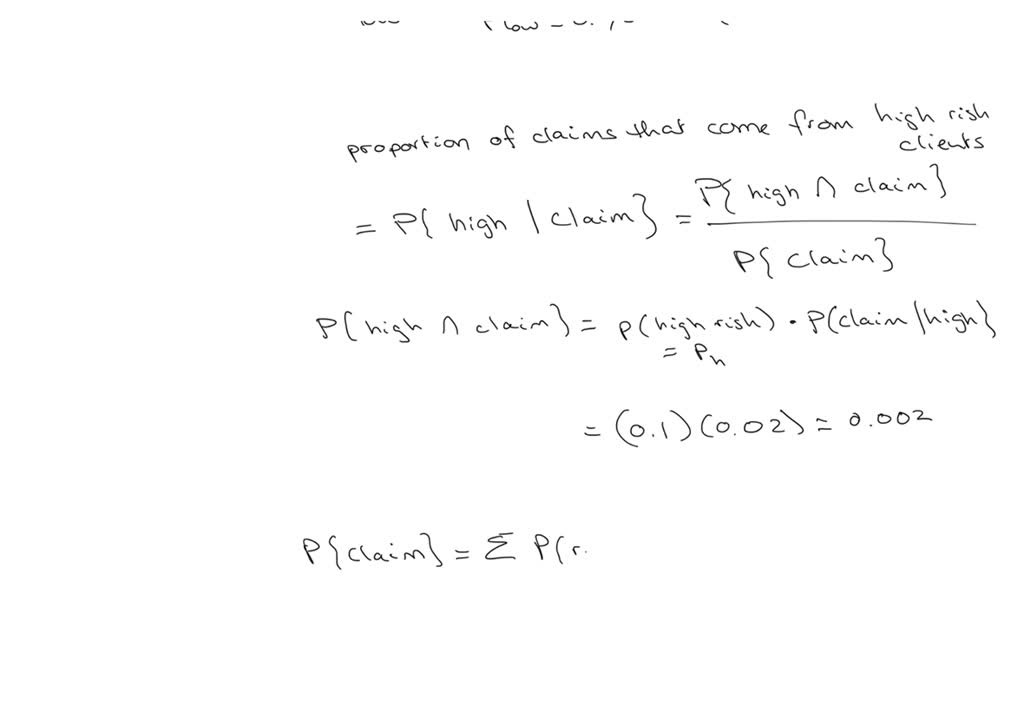 proportion of claims that come from high risk
clients
= P{ high | claim } = P{ high ∩ claim } / P{ claim }
P{ high ∩ claim } = P(high risk) · P(claim | high}
= Pₕ
= (0.1)(0.02) = 0.002
P{claim} = Σ P(r